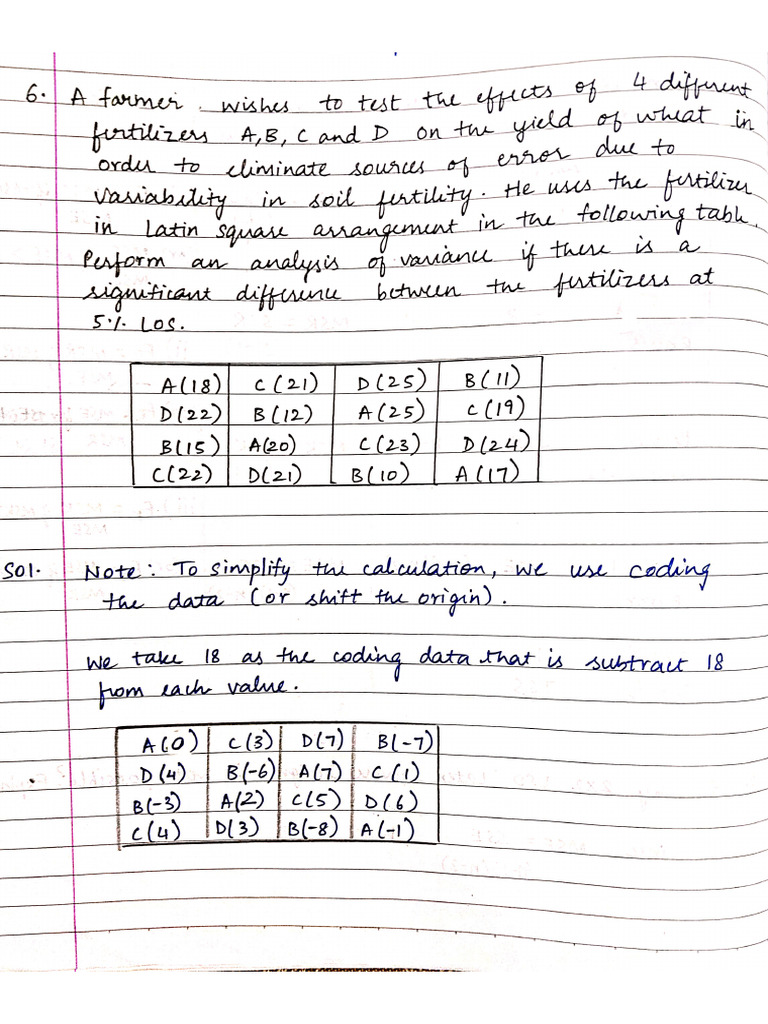 6. A farmer wishes to test the effects of 4 different
fertilizers A, B, C and D on the yield of wheat in
order to eliminate sources of error due to
variability in soil fertility. He uses the fertilizer
in Latin square arrangement in the following table.
Perform an analysis of variance if there is a
significant difference between the fertilizers at
5% LOS.
A(18) C(21) D(25) B(11)
D(22) B(12) A(25) C(19)
B(15) A(20) C(23) D(24)
C(22) D(21) B(10) A(17)
Sol. Note: To simplify the calculation, we use coding
the data (or shift the origin).
We take 18 as the coding data that is subtract 18
from each value.
A(0) C(3) D(7) B(-7)
D(4) B(-6) A(7) C(1)
B(-3) A(2) C(5) D(6)
C(4) D(3) B(-8) A(-1)